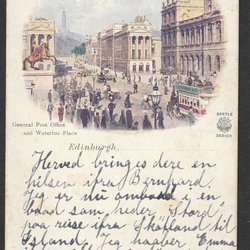 General Post Office
and Waterloo-Place
CASTLE
SERIES
Edinburgh.
Herved bringes dere en
hilsen ifra Berntzard.
Jeg er nu ombord i en
baad som heder "Stord"
paa reise ifra Skotland til
Island. Jeg haaber Emma